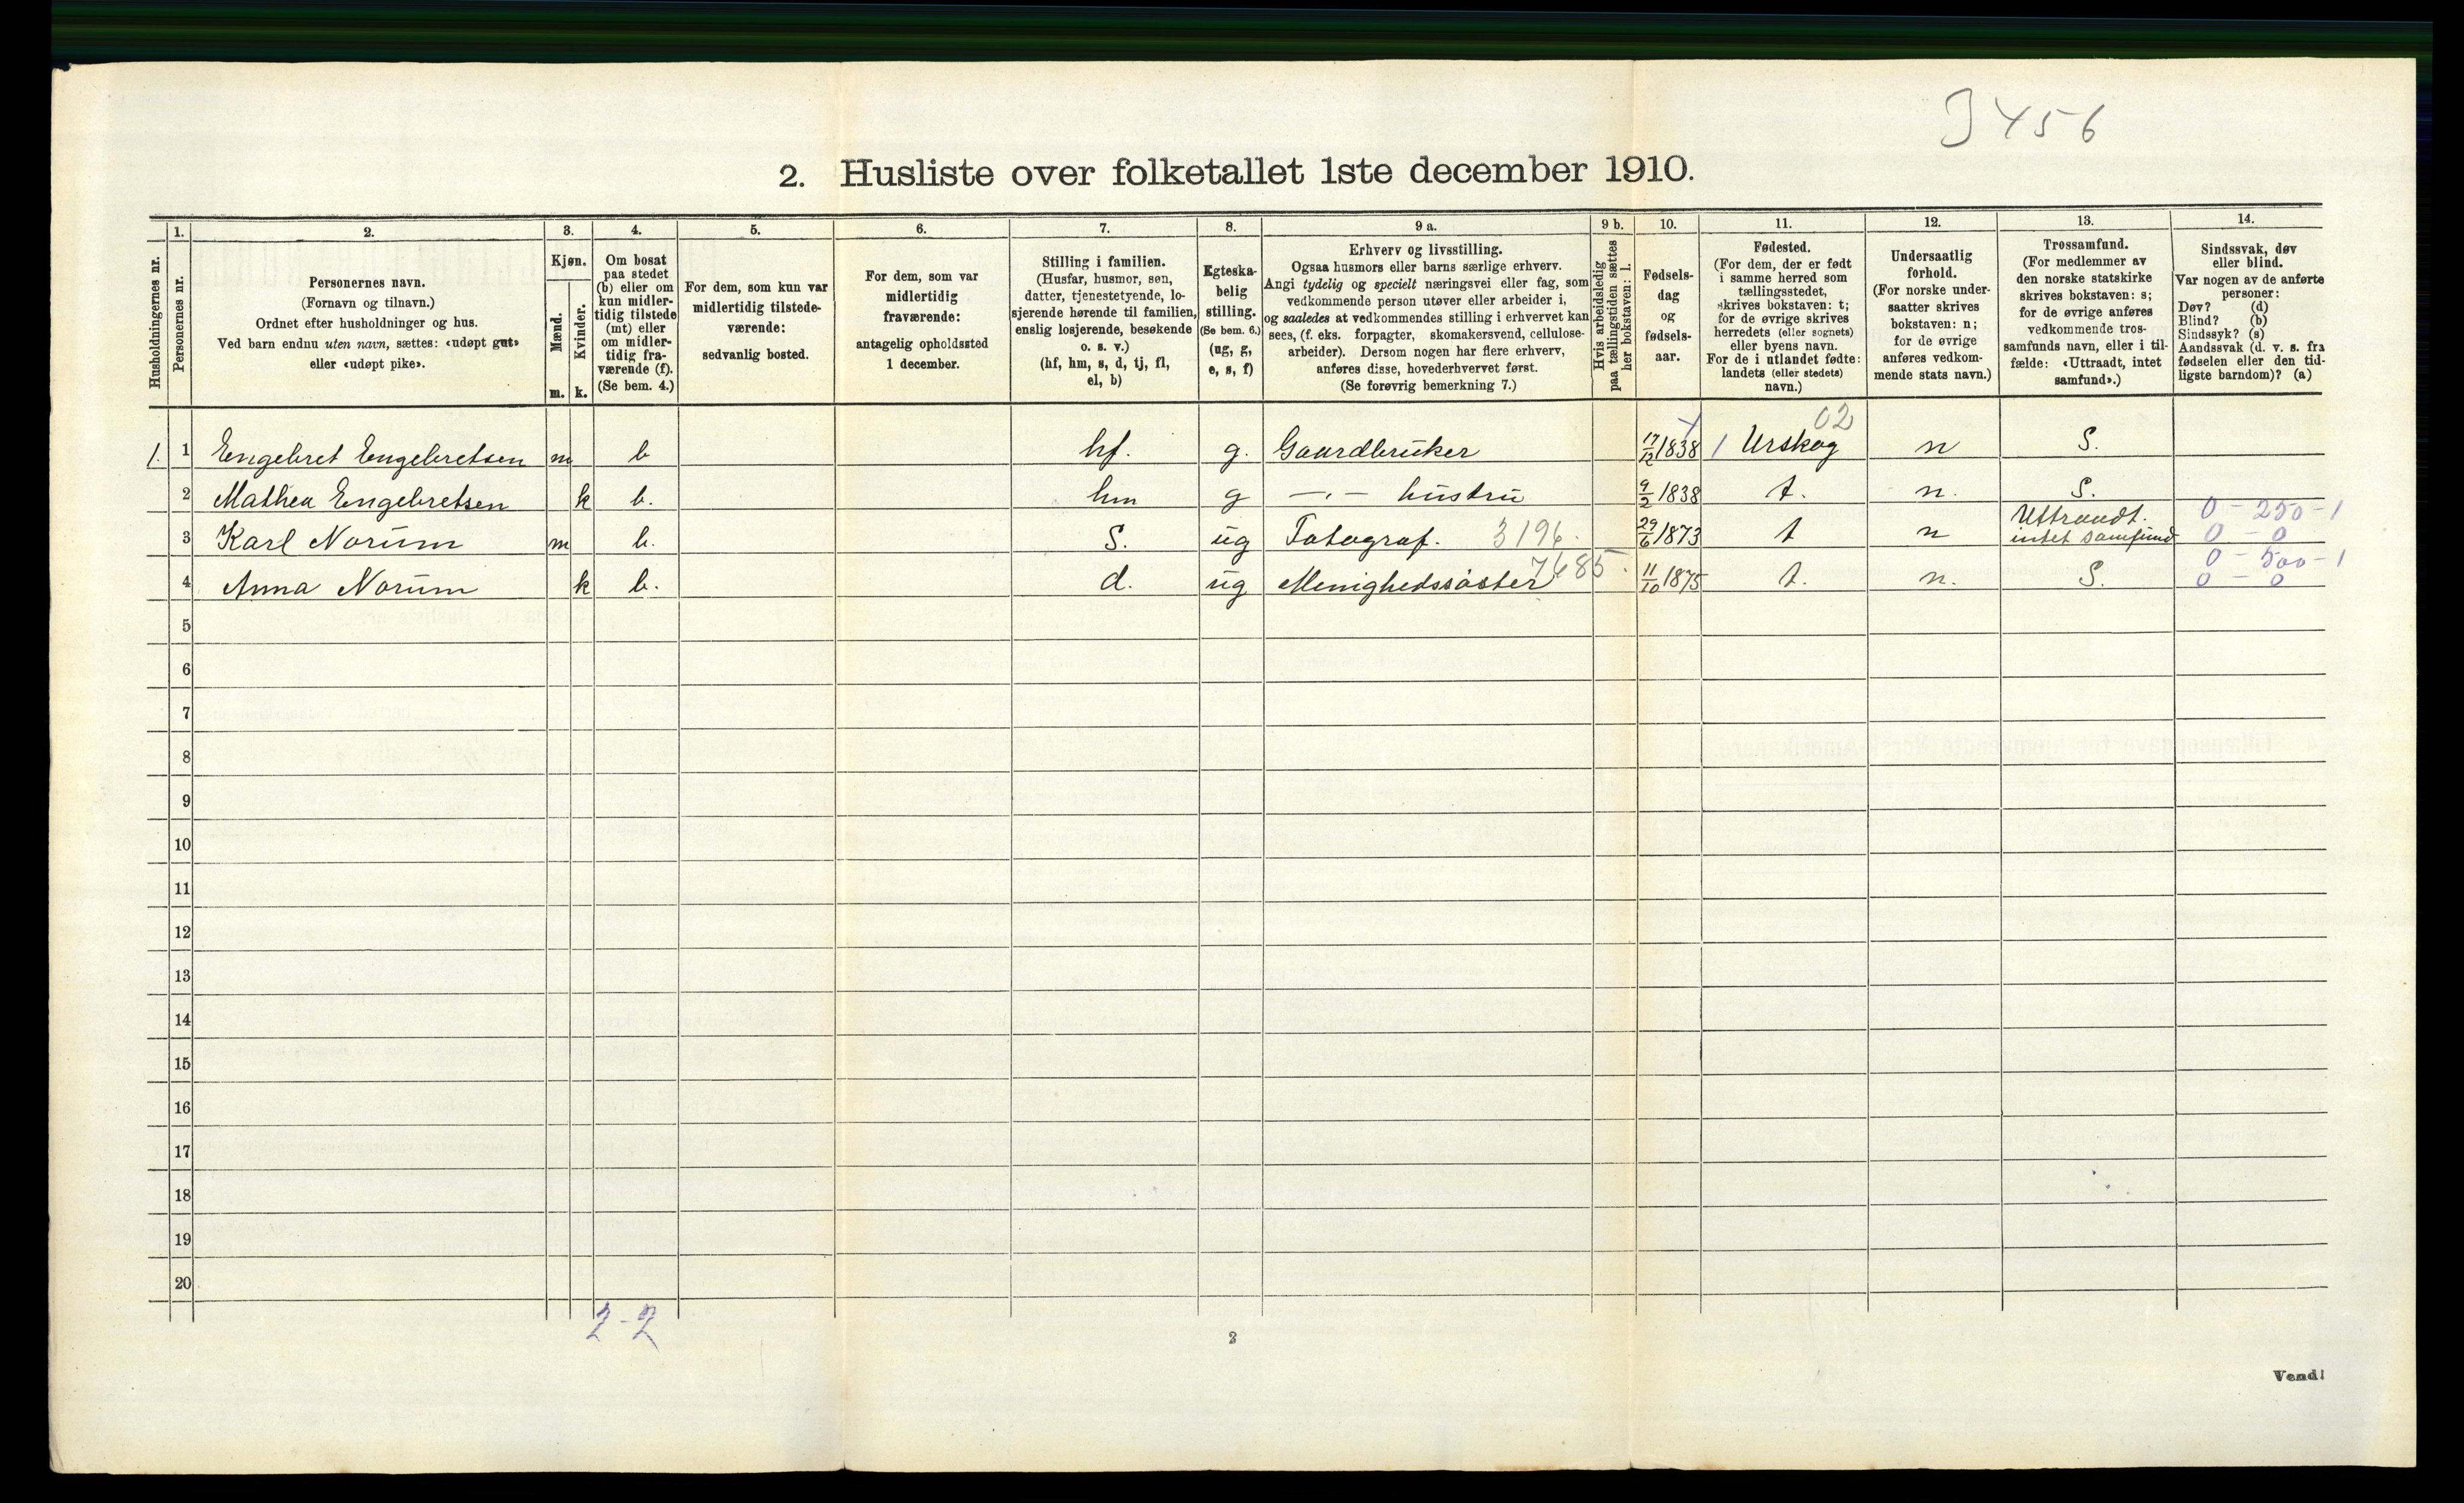 3456
2. Husliste over folketallet 1ste december 1910.
Husholdningernes nr.
1.
Personernes nr.
2.
Personernes navn.
(Fornavn og tilnavn.)
Ordnet efter husholdninger og hus.
Ved barn endnu uten navn, sættes: «udøpt gut»
eller «udøpt pike».
3.
Kjøn.
Mænd.
Kvinder.
m. k.
4.
Om bosat
paa stedet
(b) eller om
kun midler-
tidig tilstede
(mt) eller
om midler-
tidig fra-
værende (f).
(Se bem. 4.)
5.
For dem, som kun var
midlertidig tilstede-
værende:
sedvanlig bosted.
6.
For dem, som var
midlertidig
fraværende:
antagelig opholdssted
1 december.
7.
Stilling i familien.
(Husfar, husmor, søn,
datter, tjenestetyende, lo-
sjerende hørende til familien,
enslig losjerende, besøkende
o. s. v.)
(hf, hm, s, d, tj, fl,
el, b)
8.
Egteska-
belig
stilling.
(Se bem. 6.)
(ug, g,
e, s, f)
9 a.
Erhverv og livsstilling.
Ogsaa husmors eller barns særlige erhverv.
Angi tydelig og specielt næringsvei eller fag, som
vedkommende person utøver eller arbeider i,
og saaledes at vedkommendes stilling i erhvervet kan
sees, (f. eks. forpagter, skomakersvend, cellulose-
arbeider). Dersom nogen har flere erhverv,
anføres disse, hovederhvervet først.
(Se forøvrig bemerkning 7.)
9 b.
Hvis arbeidsledig
paa tællingstiden sættes
her bokstaven: l.
10.
Fødsels-
dag
og
fødsels-
aar.
11.
Fødested.
(For dem, der er født
i samme herred som
tællingsstedet,
skrives bokstaven: t;
for de øvrige skrives
herredets (eller sognets)
eller byens navn.
For de i utlandet fødte:
landets (eller stedets)
navn.)
12.
Undersaatlig
forhold.
(For norske under-
saatter skrives
bokstaven: n;
for de øvrige
anføres vedkom-
mende stats navn.)
13.
Trossamfund.
(For medlemmer av
den norske statskirke
skrives bokstaven: s;
for de øvrige anføres
vedkommende tros-
samfunds navn, eller i til-
fælde: «Uttraadt, intet
samfund».)
14.
Sindssvak, døv
eller blind.
Var nogen av de anførte
personer:
Døv? (d)
Blind? (b)
Sindssyk? (s)
Aandssvak (d. v. s. fra
fødselen eller den tid-
ligste barndom)? (a)
02
1. 1 Engebret Engebretsen m b hf. g. Gaardbruker 17/12 1838 1 Urskog n S.
2 Mathea Engebretsen k b. hm g —„— hustru 9/2 1838 t. n. S.
3 Karl Norum m b. S. ug Fotograf. 3196. 29/6 1873 t n Uttraadt. intet samfund 0 - 250 - 1 0 - 0
4 Anna Norum k b. d. ug Menighedssøster 7685. 11/10 1875 t. n. S. 0 - 500 - 1 0 - 0
5
6
7
8
9
10
11
12
13
14
15
16
17
18
19
20
2-2
2
Vend!